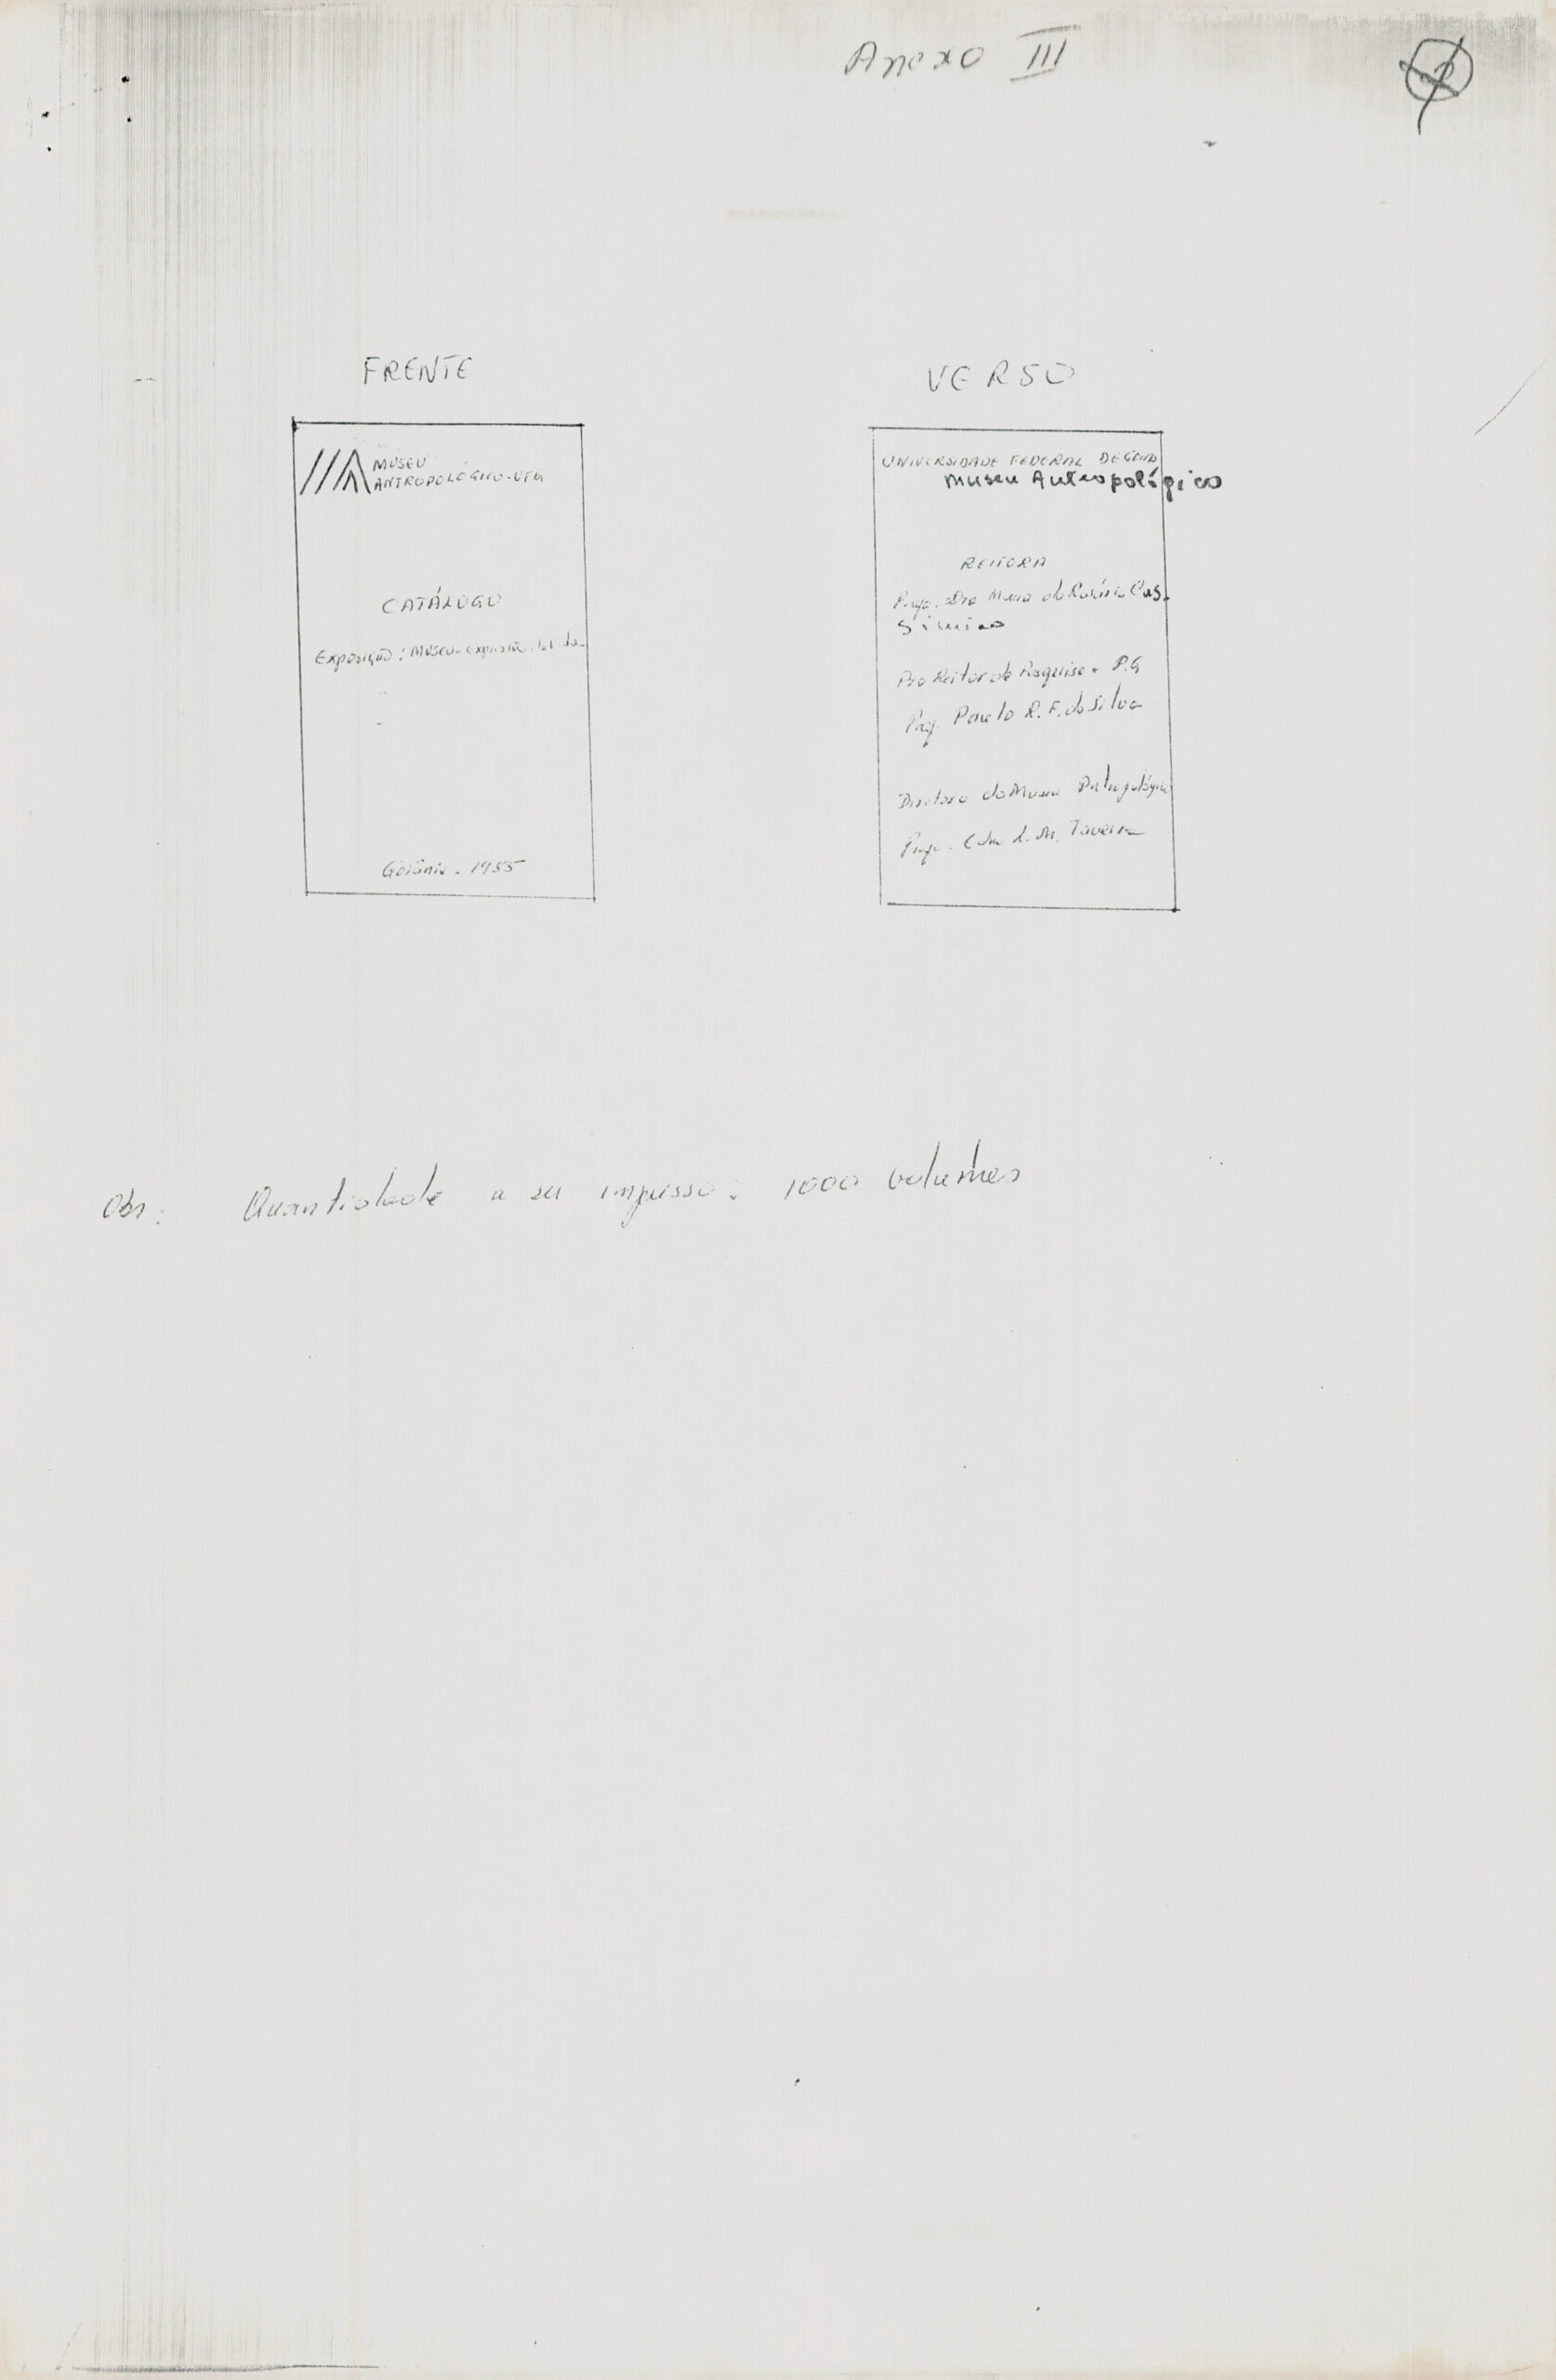 Anexo III
FRENTE
MUSEU
ANTROPOLÓGICO-UFG
CATÁLOGO
Exposição: Museu-expressão
Goiânia - 1985
VERSO
UNIVERSIDADE FEDERAL DE GOIÁS
Museu Antropológico
REITORA
Profa. Dra Maria do Rosário Cas-
Simiro
Pro Reitor de Pesquisa e P.G
Prof. Paulo R. F. da Silva
Diretora do Museu Antropológico
Profa. Edna L. M. Taveira
Obs: Quantidade a ser impresso: 1000 volumes